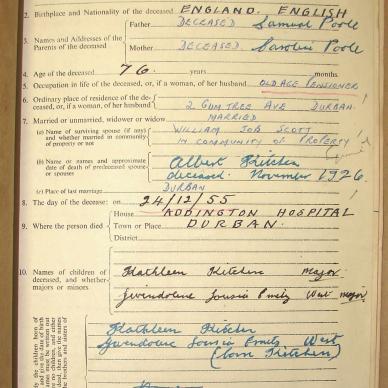 2. Birthplace and Nationality of the deceased ENGLAND. ENGLISH
Father DECEASED Samuel Poole
3. Names and Addresses of the Parents of the deceased
Mother DECEASED Caroline Poole
4. Age of the deceased 76. years months
5. Occupation in life of the deceased, or, if a woman, of her husband OLD AGE PENSIONER
6. Ordinary place of residence of the deceased, or, if a woman, of her husband 2 GUM TREE AVE DURBAN.
7. Married or unmarried, widower or widow MARRIED
(a) Name of surviving spouse (if any) and whether married in community of property or not WILLIAM JOB SCOTT
IN COMMUNITY OF PROPERTY
(b) Name or names and approximate date of death of predeceased spouse or spouses Albert Kitchen
deceased. November 1926.
(c) Place of last marriage DURBAN
8. The day of the decease: on 24/12/55
House ADDINGTON HOSPITAL
9. Where the person died Town or Place DURBAN.
District
10. Names of children of deceased, and whether majors or minors
Kathleen Kitchen major.
Gwendolene Louisa Emily West major
Kathleen Kitchen
Gwendolene Louisa Emily West
(born Kitchen)